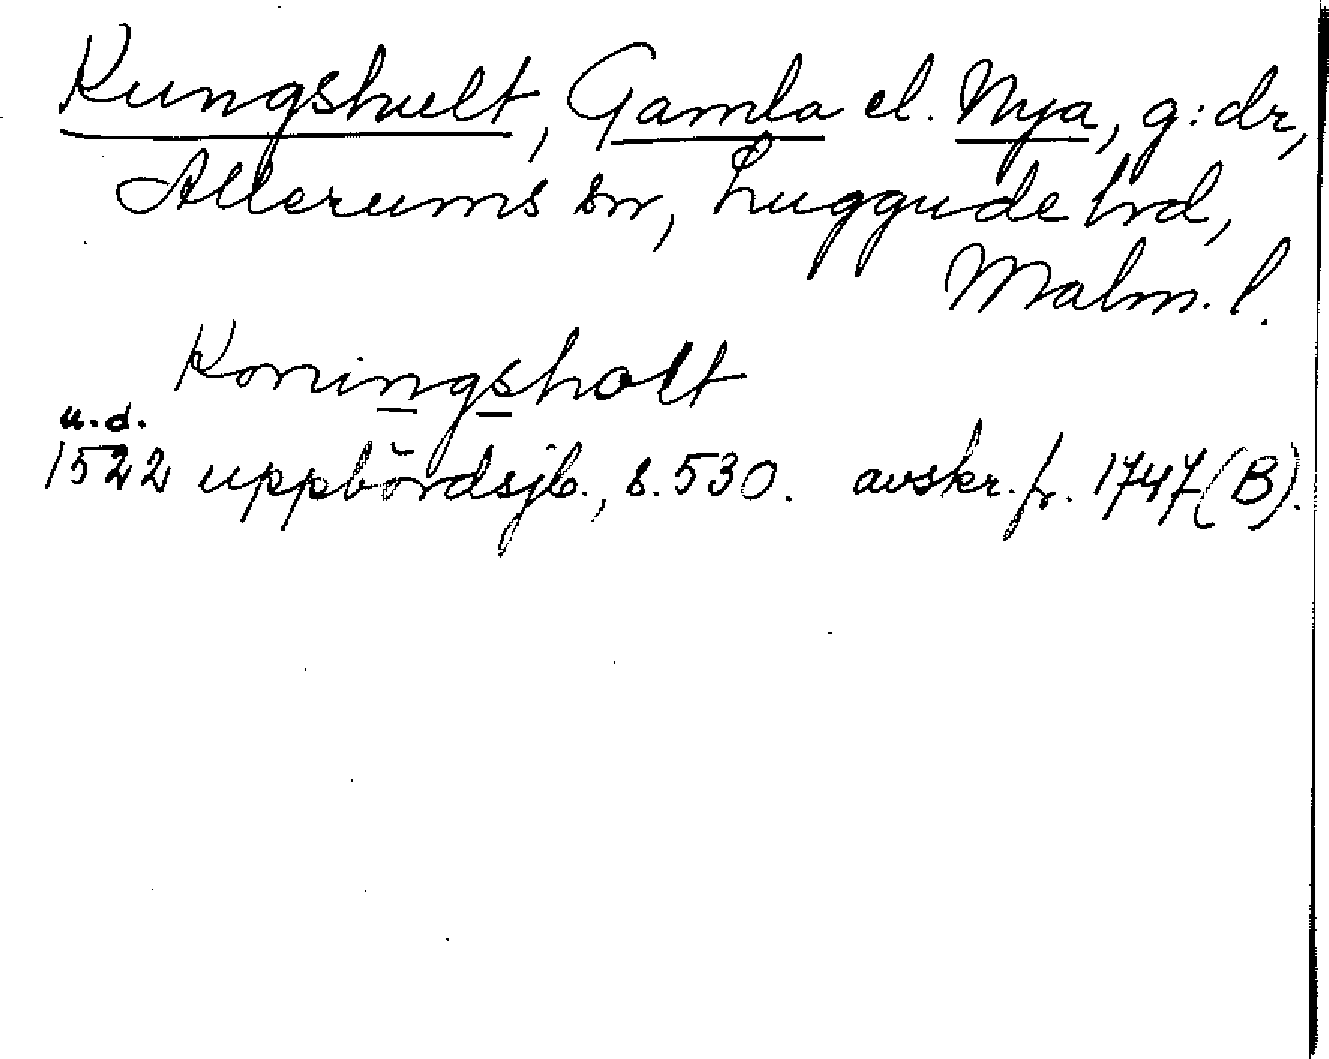 Kungshult, Gamla el. Nya, g:dr,
Allerums sn, Luggude hrd,
Malm. l.
Koningsholt
u.d.
1522 uppbördsjb., s. 530. avskr. fr. 1747 (B).